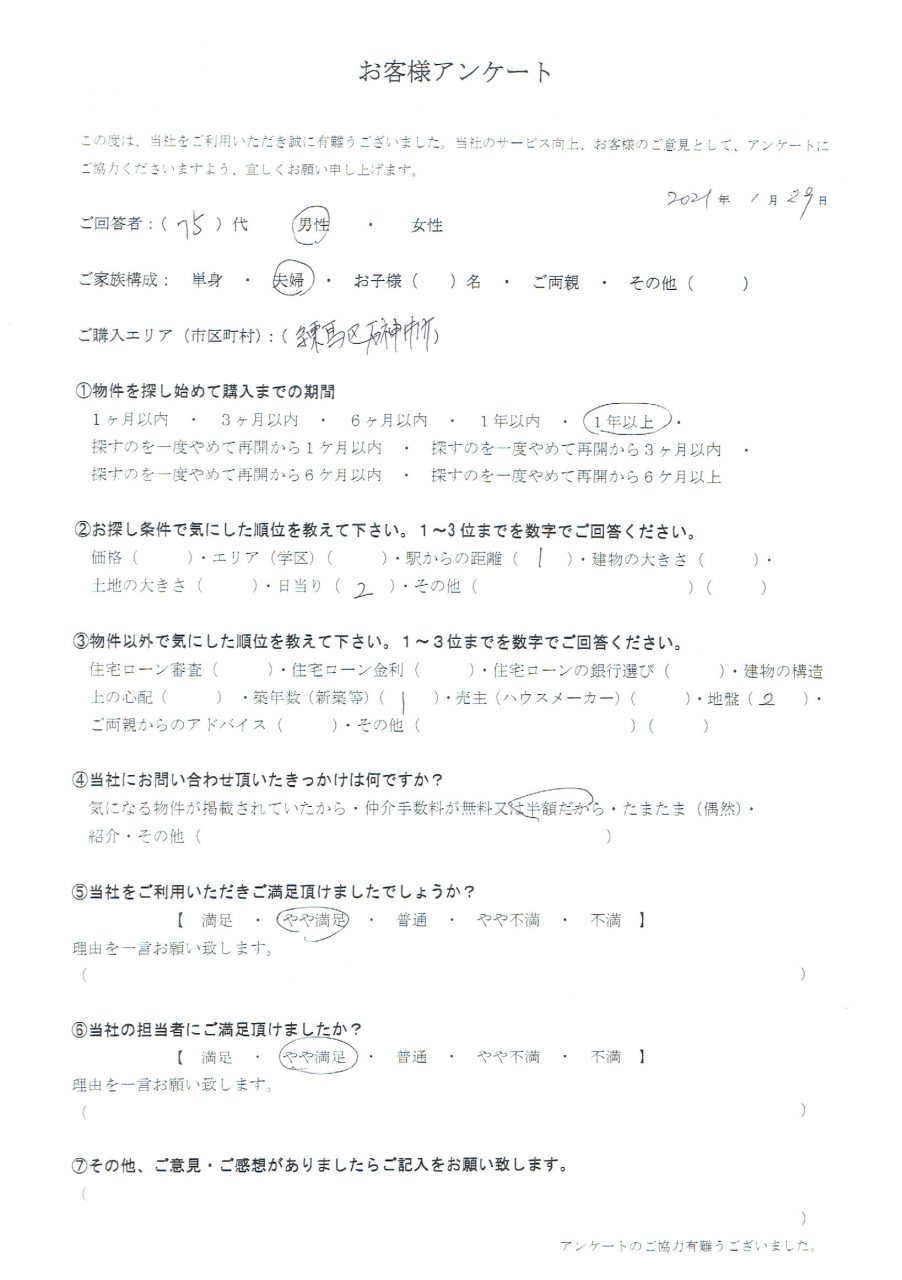 お客様アンケート
この度は、当社をご利用いただき誠に有難うございました。当社のサービス向上、お客様のご意見として、アンケートに
ご協力くださいますよう、宜しくお願い申し上げます。
2021 年 1 月 29 日
ご回答者：（ 75 ）代 男性 ・ 女性
ご家族構成： 単身 ・ 夫婦 ・ お子様（ ）名 ・ ご両親 ・ その他（ ）
ご購入エリア（市区町村）：（ 練馬区石神井町 ）
①物件を探し始めて購入までの期間
１ヶ月以内 ・ ３ヶ月以内 ・ ６ヶ月以内 ・ １年以内 ・ １年以上 ・
探すのを一度やめて再開から１ケ月以内 ・ 探すのを一度やめて再開から３ヶ月以内 ・
探すのを一度やめて再開から６ケ月以内 ・ 探すのを一度やめて再開から６ケ月以上
②お探し条件で気にした順位を教えて下さい。１～３位までを数字でご回答ください。
価格（ ）・エリア（学区）（ ）・駅からの距離（ 1 ）・建物の大きさ（ ）・
土地の大きさ（ ）・日当り（ 2 ）・その他（ ）（ ）
③物件以外で気にした順位を教えて下さい。１～３位までを数字でご回答ください。
住宅ローン審査（ ）・住宅ローン金利（ ）・住宅ローンの銀行選び（ ）・建物の構造
上の心配（ ） ・築年数（新築等）（ 1 ）・売主（ハウスメーカー）（ ）・地盤（ 2 ）・
ご両親からのアドバイス（ ）・その他（ ）（ ）
④当社にお問い合わせ頂いたきっかけは何ですか？
気になる物件が掲載されていたから・仲介手数料が無料又は半額だから・たまたま（偶然）・
紹介・その他（ ）
⑤当社をご利用いただきご満足頂けましたでしょうか？
【 満足 ・ やや満足 ・ 普通 ・ やや不満 ・ 不満 】
理由を一言お願い致します。
（ ）
⑥当社の担当者にご満足頂けましたか？
【 満足 ・ やや満足 ・ 普通 ・ やや不満 ・ 不満 】
理由を一言お願い致します。
（ ）
⑦その他、ご意見・ご感想がありましたらご記入をお願い致します。
（
）
アンケートのご協力有難うございました。